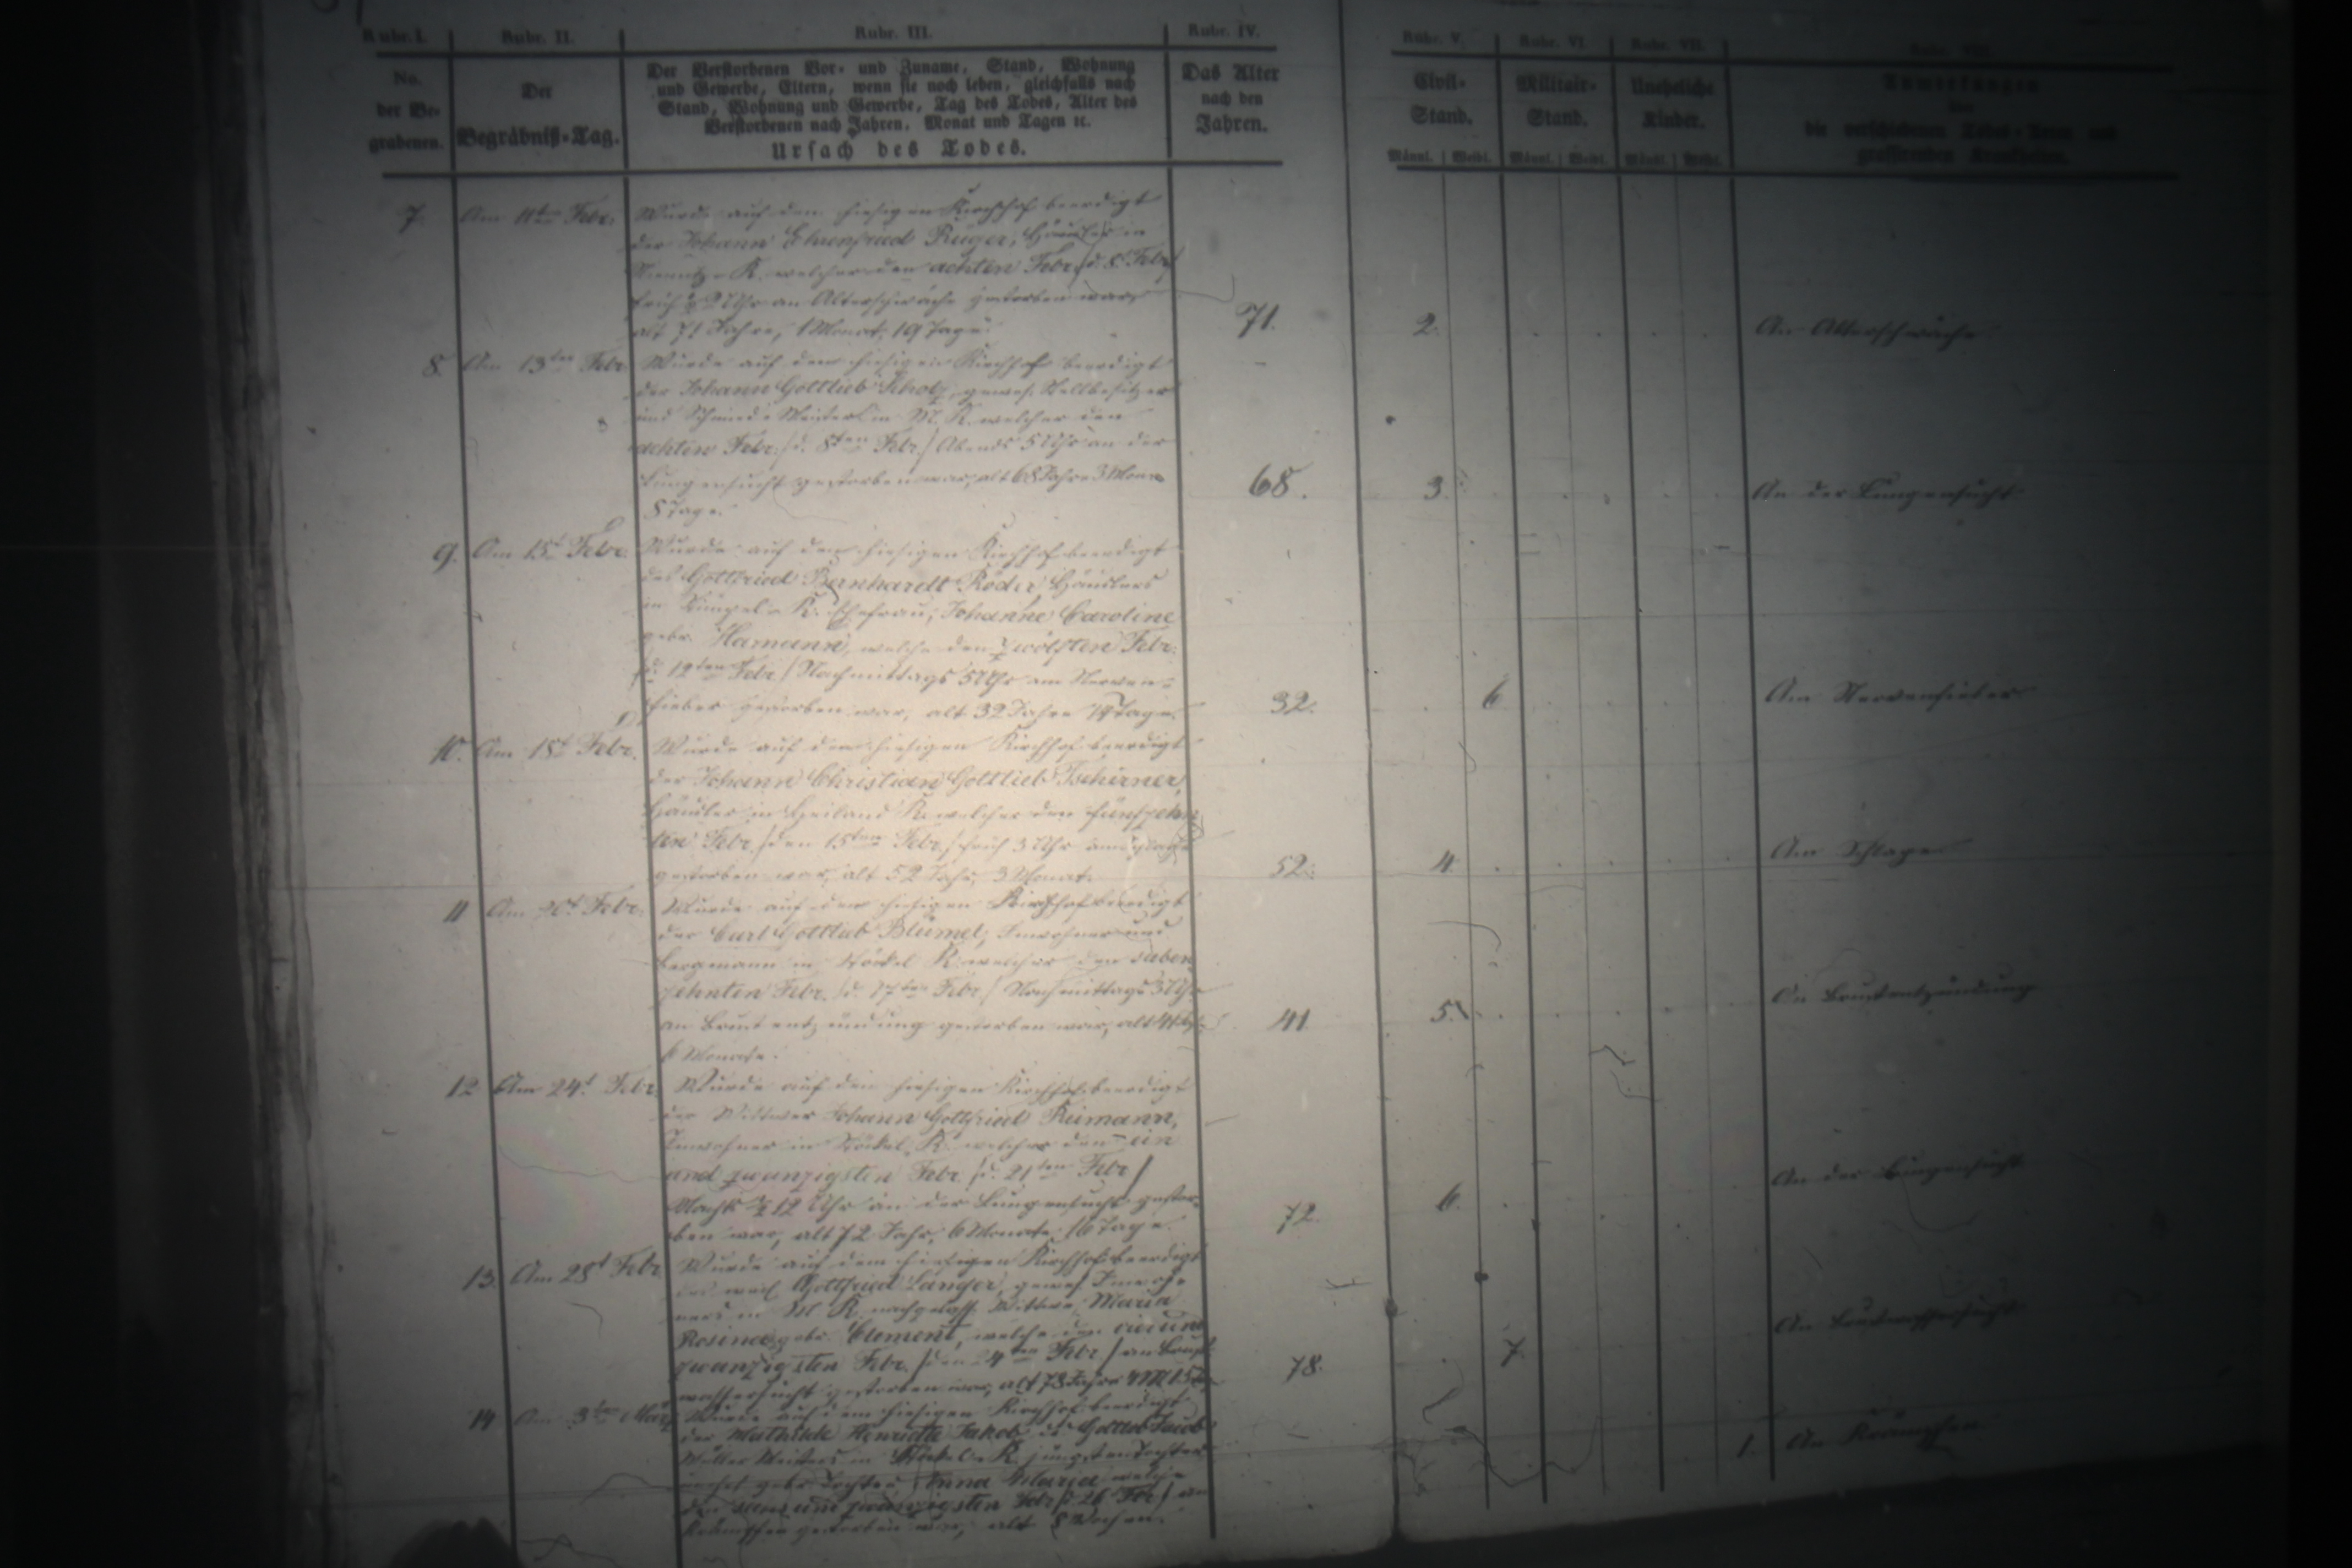 Rubr. I. Rubr. II. Rubr. III. Rubr. IV. Rubr. V. Rubr. VI. Rubr. VII.
No.
der Be-
grabenen.
Der
Begräbniß-Tag.
Der Verstorbenen Vor- und Zuname, Stand, Wohnung
und Gewerbe, Eltern, wenn sie noch leben, gleichfalls nach
Stand, Wohnung und Gewerbe, Tag des Todes, Alter des
Verstorbenen nach Jahren, Monat und Tagen ꝛc.
Ursach des Todes.
Das Alter
nach den
Jahren.
Civil-
Stand.
Männl. Weibl.
Militair-
Stand.
Männl. Weibl.
Uneheliche
Kinder.
Männl. Weibl.
die verschiedenen Todes-Arten und
grassirenden Krankheiten.
7. Am 11ten Febr.
Wurde auf dem hiesigen Kirchhof beerdigt
der Johann Ehrenfried Rüger, Häusler in
K. welcher den achten Febr. /d. 8t Febr/
früh 2 Uhr an Altersschwäche gestorben war,
alt 71 Jahre, 1 Monat, 19 Tage.
71. 2. An Altersschwäche
8. Am 13ten Febr.
Wurde auf dem hiesigen Kirchhof beerdigt
der Johann Gottlieb Scholz, gewes. Stellbesitzer
und Schmiede Meister in M. K. welcher den
achten Febr. /d. 8ten Febr./ Abends 5 Uhr an der
Lungensucht gestorben war, alt 68 Jahre 3 Mon
8 Tage.
68. 3. An der Lungensucht
9. Am 15t Febr.
Wurde auf dem hiesigen Kirchhof beerdigt
des Gottfried Bernhardt Röder, Häuslers
in K. Ehefrau, Johanne Caroline
geb. Hamann, welche den zwölften Febr.
/d. 12ten Febr/ Nachmittags 5 Uhr am Nerven-
fieber gestorben war, alt 32 Jahre 14 Tage.
32. 6 Am Nervenfieber
10. Am 18t Febr.
Wurde auf dem hiesigen Kirchhof beerdigt
der Johann Christian Gottlieb Tschirner,
Häusler in Heiland K. welcher den fünfzehn
ten Febr. /den 15ten Febr./ früh 3 Uhr am Schlage
gestorben war, alt 52 Jahr, 3 Monat.
52. 4. Am Schlage
11 Am 20t Febr.
Wurde auf dem hiesigen Kirchhof beerdigt
der Carl Gottlieb Blümel, Inwohner und
Bergmann in Stöckel K. welcher den sieben
zehnten Febr. /d. 17ten Febr/ Nachmittags 3 Uhr
an Brustentzündung gestorben war, alt 41
6 Monate.
41 5. An Brustentzündung
12 Am 24t Febr.
Wurde auf dem hiesigen Kirchhof beerdigt
der Wittwer Johann Gottfried Reimann,
Inwohner in Stöckel K. welcher den ein
und zwanzigsten Febr. /d. 21ten Febr/
Nachts 12 Uhr an der Lungensucht gestor-
ben war, alt 72 Jahr, 6 Monate 16 Tage.
72. 6. An der Lungensucht
13. Am 28t Febr.
Wurde auf dem hiesigen Kirchhof beerdigt
des weil. Gottfried Langer, gewes. Inwoh-
ners in M K. nachgelass. Wittwe, Maria
Rosina geb. Clement, welche den vier und
zwanzigsten Febr. /den 24ten Febr/ an Brust-
wassersucht gestorben war, alt 78 Jahre
78. 7. An Brustwassersucht
14 Am 3ten März
Wurde auf dem hiesigen Kirchhof beerdigt
der Mathilde Henriette Jakob, Gottlob Jacob
Müller Meisters in K. jüngsten Tochter
Tochter Anna Maria welche
den und zwanzigsten Febr /d 26 Febr/ an
Krämpfen gestorben war, alt 8 Wochen.
1. An Krämpfen